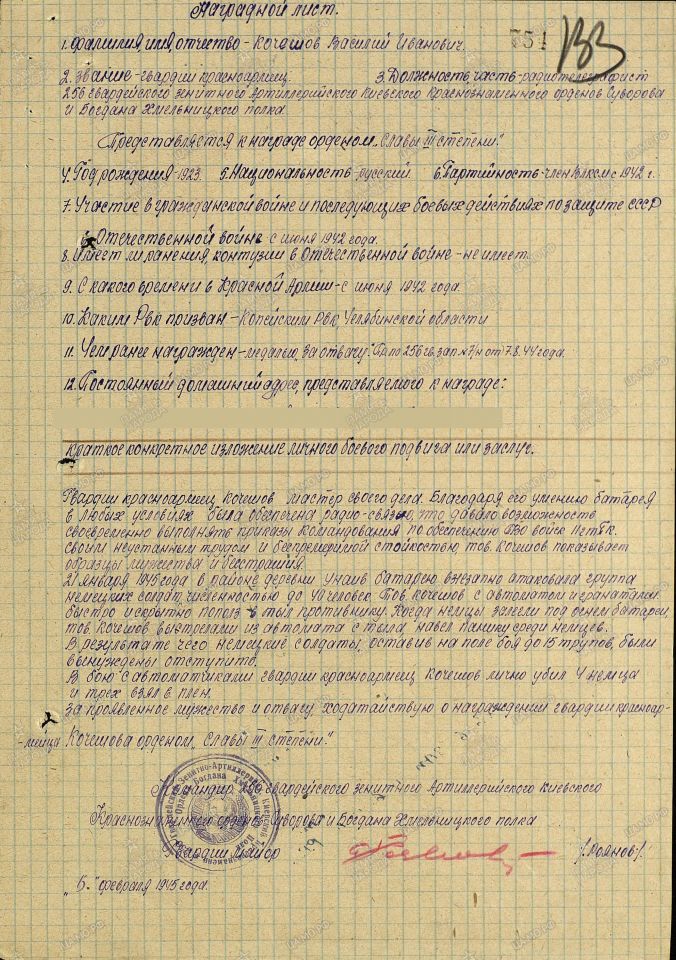 Наградной лист.
1. Фамилия имя отчество - Кочешов Василий Иванович.
2. Звание - гвардии красноармеец. 3. Должность, часть - радиотелеграфист
256 гвардейского зенитного Артиллерийского Киевского Краснознаменного орденов Суворова
и Богдана Хмельницкого полка
Представляется к награде орденом „Славы III степени".
4. Год рождения - 1923. 5. Национальность - русский. 6. Партийность - член ВЛКСМ с 1942 г.
7. Участие в гражданской войне и последующих боевых действиях по защите СССР
в Отечественной войне с июня 1942 года.
8. Имеет ли ранения, контузии в Отечественной войне - не имеет.
9. С какого времени в Красной Армии - с июня 1942 года.
10. Каким Рвк призван - Копейским Рвк, Челябинской области
11. Чем ранее награжден - медалью „За отвагу" Пр. по 256 гв. зап. № 7/н от 7.8.44 года.
12. Постоянный домашний адрес, представляемого к награде:
Краткое конкретное изложение личного боевого подвига или заслуг.
Гвардии красноармеец Кочешов мастер своего дела. Благодаря его умению батарея
в любых условиях была обеспечена радио-связью, что давало возможность
своевременно выполнять приказы командования по обеспечению ПВО войск
своим неустанным трудом и беспремерной стойкостью, тов. Кочешов показывает
образцы мужества и бесстрашия.
21 января 1945 года в районе деревни батарею внезапно атаковала группа
немецких солдат, численностью до 40 человек. Тов. Кочешов с автоматом и гранатами
быстро и скрытно пополз в тыл противнику. Когда немцы залегли под огнем батареи,
тов. Кочешов выстрелами из автомата с тыла, навел панику среди немцев.
В результате чего немецкие солдаты, оставив на поле боя до 15 трупов, были
вынуждены отступить.
В бою с автоматчиками гвардии красноармеец Кочешов лично убил 4 немца
и трех взял в плен.
За проявленное мужество и отвагу ходатайствую о награждении гвардии красноар-
-мейца Кочешова орденом „Славы III степени".
Командир 256 гвардейского зенитного Артиллерийского Киевского
Краснознаменного орденов Суворова и Богдана Хмельницкого полка
Гвардии майор /Лоянов/.
„5" февраля 1945 года.